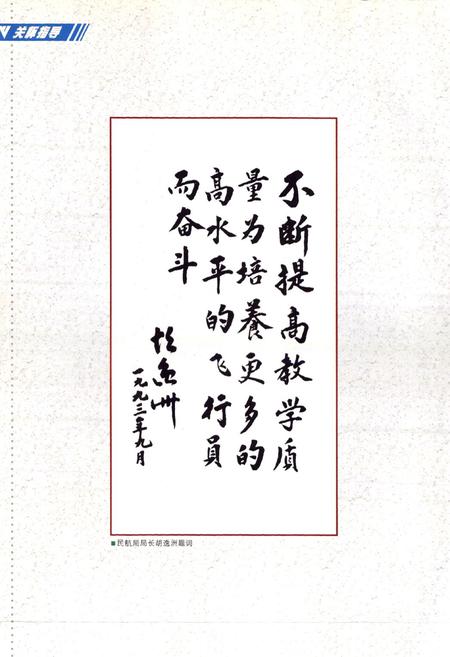 关怀指导
不断提高教学质
量为培養更多的
高水平的飞行員
而奋斗
胡逸洲
一九九三年九月
民航局局长胡逸洲题词